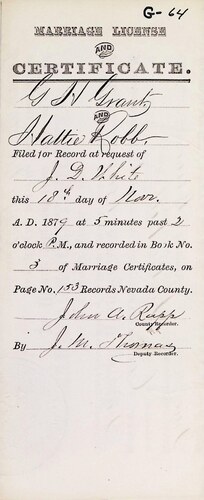 G-64
MARRIAGE LICENSE
AND
CERTIFICATE.
G H Grant
AND
Hattie Robb
Filed for Record at request of
J. D. White
this 18th day of Nov.
A. D. 1879 at 5 minutes past 2
o'clock P.M., and recorded in Book No.
3 of Marriage Certificates, on
Page No. 153 Records Nevada County.
John A. Rapp
County Recorder.
By J. M. Thomas
Deputy Recorder.